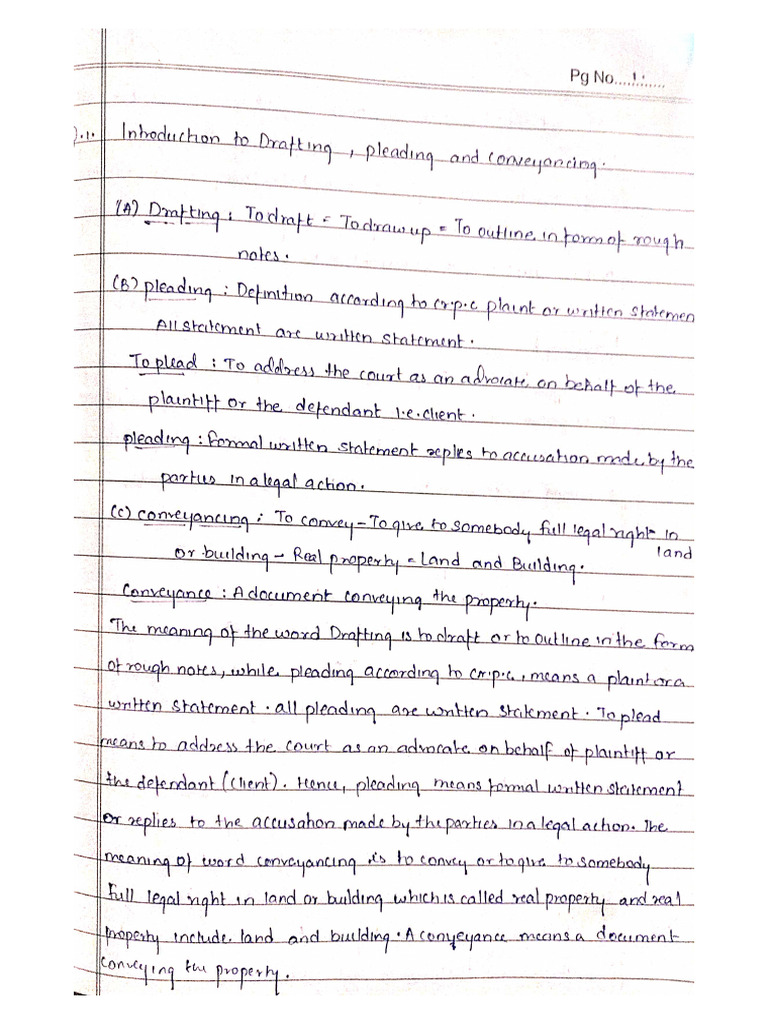 Pg No....1:.....
Q.1. Introduction to Drafting, pleading and conveyancing.
(A) Drafting : To draft = To draw up = To outline in form of rough
notes.
(B) pleading : Definition according to cr.p.c plaint or written statemen
All statement are written statement.
To plead : To address the court as an advocate on behalf of the
plaintiff or the defendant i.e. client.
pleading : formal written statement replies to accusation made by the
parties in a legal action.
(C) conveyancing : To convey - To give to somebody full legal right in
land
or building - Real property = Land and Building.
Conveyance : A document conveying the property.
The meaning of the word Drafting is to draft or to outline in the form
of rough notes, while pleading according to cr.p.c, means a plaint or a
written statement. all pleading are written statement. To plead
means to address the court as an advocate on behalf of plaintiff or
the defendant (client). Hence, pleading means formal written statement
or replies to the accusation made by the parties in a legal action. The
meaning of word conveyancing is to convey or to give to somebody
full legal right in land or building which is called real property and real
property include land and building. A conveyance means a document
conveying the property.